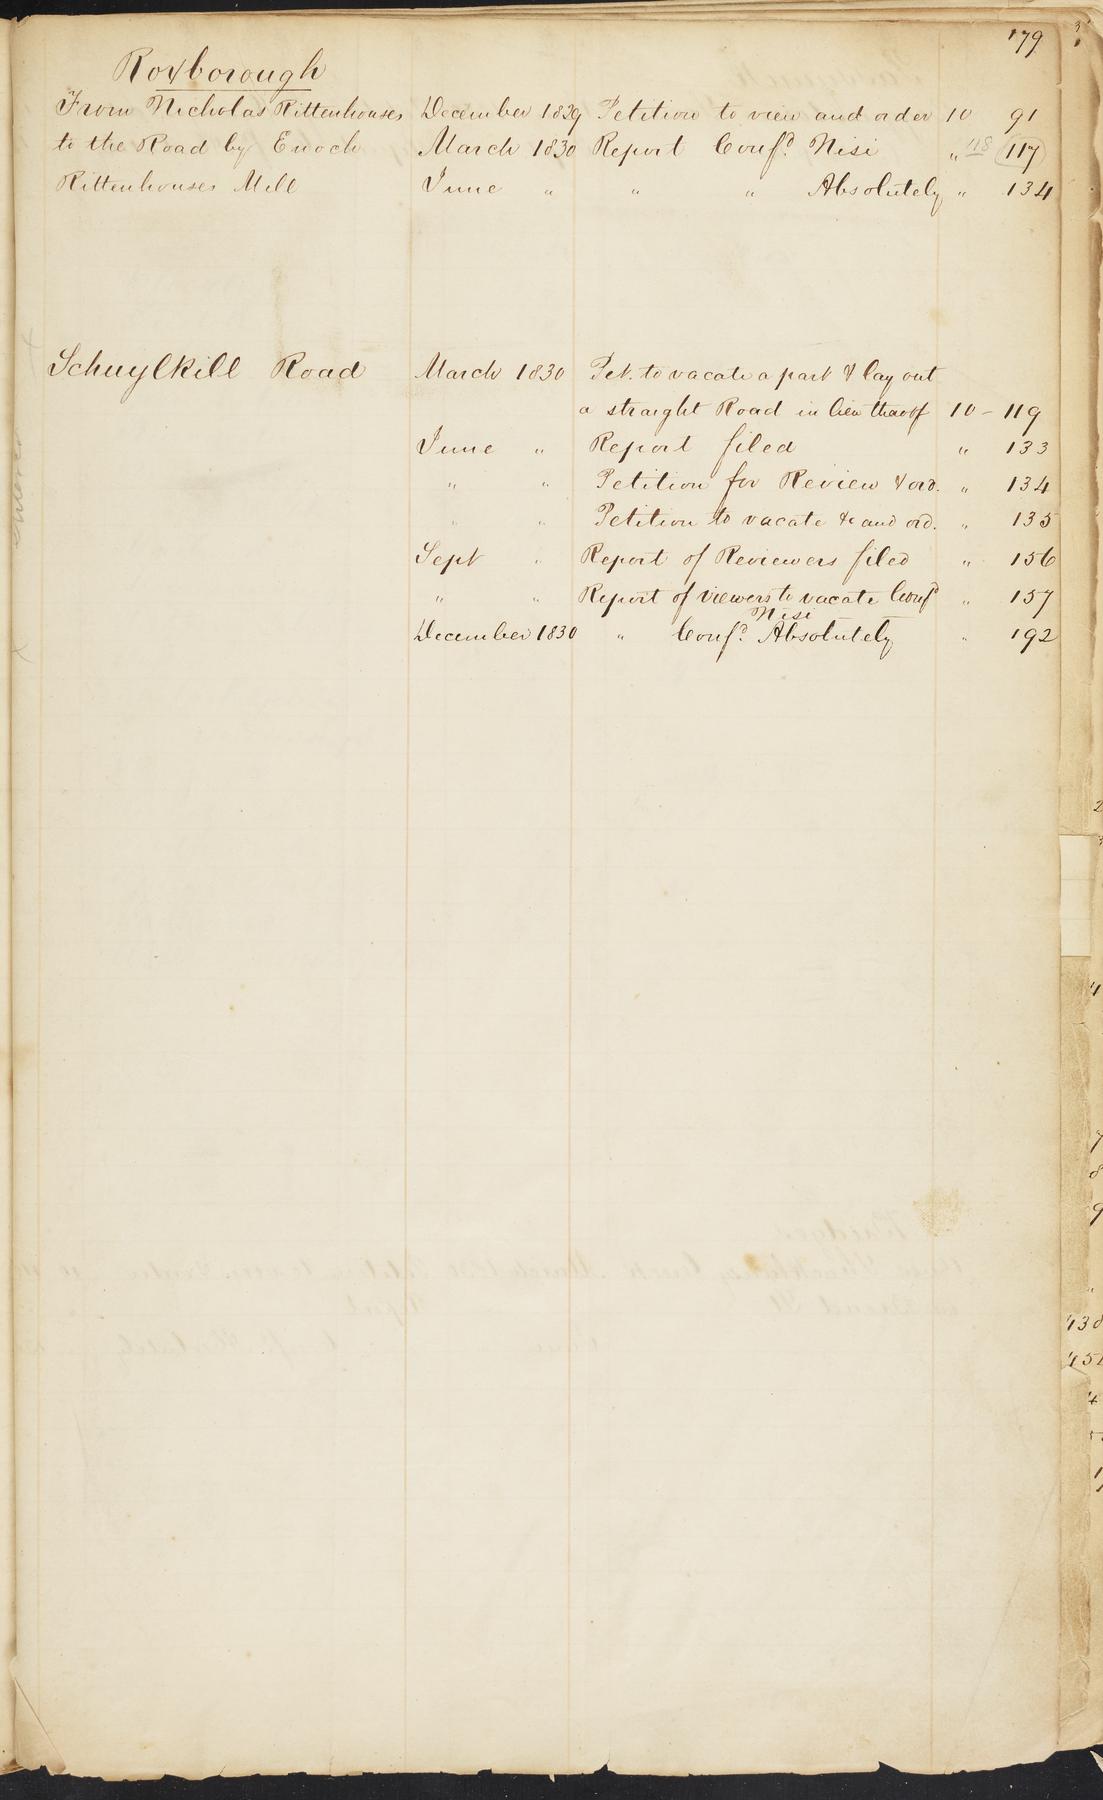 179
Roxborough
From Nicholas Rittenhouses December 1829 Petition to view and order 10 91
to the Road by Enoch March 1830 Report Confd. Nisi " 118 117
Rittenhouses Mill June " " " Absolutely " 134
Schuylkill Road March 1830 Pet. to vacate a part & lay out
a straight Road in lieu thereof 10 - 119
June " Report filed " 133
" " Petition for Review & ord. " 134
" " Petition to vacate &c and ord. " 135
Sept " Report of Reviewers filed " 156
" " Report of viewers to vacate Confd " 157
Nisi
December 1830 " Confd. Absolutely " 192